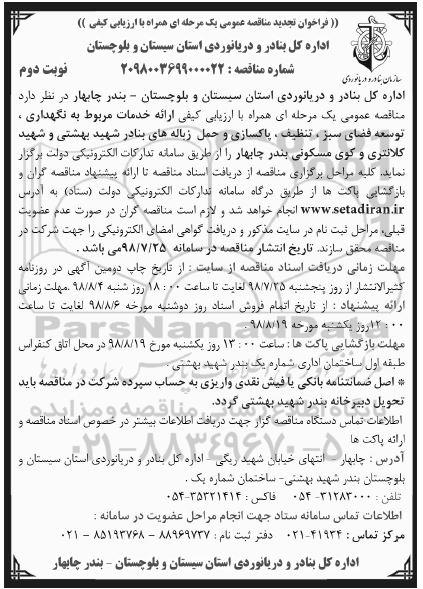 (( فراخوان تجدید مناقصه عمومی یک مرحله ای همراه با ارزیابی کیفی ))
اداره کل بنادر و دریانوردی استان سیستان و بلوچستان
شماره مناقصه : ۲۰۹۸۰۰۳۶۹۹۰۰۰۰۲۲
نوبت دوم
سازمان بنادر و دریانوردی
اداره کل بنادر و دریانوردی استان سیستان و بلوچستان - بندر چابهار در نظر دارد
مناقصه عمومی یک مرحله ای همراه با ارزیابی کیفی ارائه خدمات مربوط به نگهداری ،
توسعه فضای سبز ، تنظیف ، پاکسازی و حمل زباله های بنادر شهید بهشتی و شهید
کلانتری و کوی مسکونی بندر چابهار را از طریق سامانه تدارکات الکترونیکی دولت برگزار
نماید. کلیه مراحل برگزاری مناقصه از دریافت اسناد مناقصه تا ارائه پیشنهاد مناقصه گران و
بازگشایی پاکت ها از طریق درگاه سامانه تدارکات الکترونیکی دولت (ستاد) به آدرس
www.setadiran.ir انجام خواهد شد و لازم است مناقصه گران در صورت عدم عضویت
قبلی، مراحل ثبت نام در سایت مذکور و دریافت گواهی امضای الکترونیکی را جهت شرکت در
مناقصه محقق سازند. تاریخ انتشار مناقصه در سامانه ۹۸/۷/۲۵می باشد .
مهلت زمانی دریافت اسناد مناقصه از سایت : از تاریخ چاپ دومین آگهی در روزنامه
کثیرالانتشار از روز پنجشنبه ۹۸/۷/۲۵ لغایت تا ساعت ۱۸:۰۰ روز شنبه ۹۸/۸/۴ .مهلت زمانی
ارائه پیشنهاد : از تاریخ اتمام فروش اسناد روز دوشنبه مورخه ۹۸/۸/۶ لغایت تا ساعت
۱۲:۰۰روز یکشنبه مورخه ۹۸/۸/۱۹ .
مهلت بازگشایی پاکت ها : ساعت ۱۳:۰۰ روز یکشنبه مورخ ۹۸/۸/۱۹ در محل اتاق کنفراس
طبقه اول ساختمان اداری شماره یک بندر شهید بهشتی .
* اصل ضمانتنامه بانکی یا فیش نقدی واریزی به حساب سپرده شرکت در مناقصه باید
تحویل دبیرخانه بندر شهید بهشتی گردد.
اطلاعات تماس دستگاه مناقصه گزار جهت دریافت اطلاعات بیشتر در خصوص اسناد مناقصه و
ارائه پاکت ها
آدرس : چابهار – انتهای خیابان شهید ریگی – اداره کل بنادر و دریانوردی استان سیستان و
بلوچستان بندر شهید بهشتی- ساختمان شماره یک .
تلفن : ۳۱۲۸۳۰۰۰-۰۵۴ فاکس : ۳۵۳۲۱۴۱۴-۰۵۴
اطلاعات تماس سامانه ستاد جهت انجام مراحل عضویت در سامانه :
مرکز تماس : ۴۱۹۳۴-۰۲۱ دفتر ثبت نام : ۸۸۹۶۹۷۳۷ – ۸۵۱۹۳۷۶۸ – ۰۲۱
اداره کل بنادر و دریانوردی استان سیستان و بلوچستان – بندر چابهار
ParsNamadData
۰۲۱-۸۸۳۴۹۶۷۰-۵